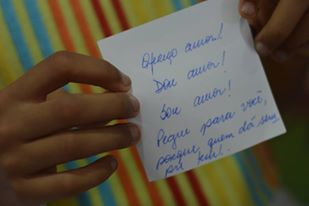 Ofereço amor!
Dou amor!
Sou amor!
Pegue para você,
porque quem dá sem
fim!